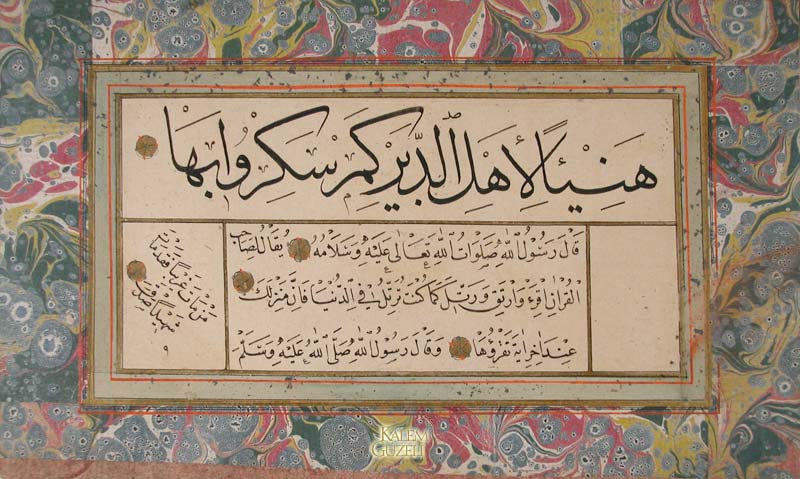 هَنِيئًا لِأَهْلِ الدَّيْرِ كَمْ سَكِرُوا بِهَا
قَالَ رَسُولُ اللهِ صَلَوَاتُ اللهِ تَعَالَى عَلَيْهِ وَسَلَامُهُ يُقَالُ لِصَاحِبِ
الْقُرْآنِ اقْرَءْ وَارْتَقِ وَرَتِّلْ كَمَا كُنْتَ تُرَتِّلُ فِي الدُّنْيَا فَإِنَّ مَنْزِلَكَ
عِنْدَ آخِرِ آيَةٍ تَقْرَؤُهَا وَقَالَ رَسُولُ اللهِ صَلَّى اللهُ عَلَيْهِ وَسَلَّمَ
مَنْ مَاتَ غَرِيبًا فَقَدْ مَاتَ
شَهِيدًا صَدَقَ
٩
KALEM
GÜZELİ